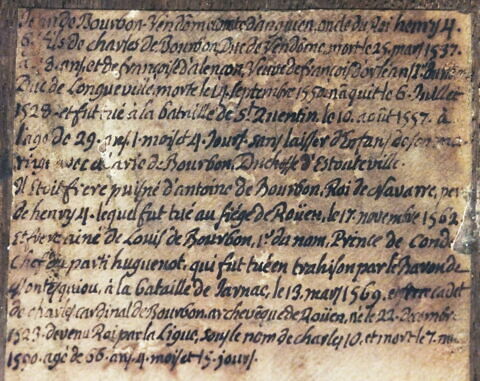 Jean de Bourbon-Vendôme comte d'anguien, oncle du Roi henry 4.
6e fils de charles de Bourbon, Duc de Vendôme, mort le 25. mars 1537.
a 48. ans, et de françoise d'alençon, Veuve de françois d'orléans 1er
Duc de Longueville, morte le 14. septembre 1550. naquit le 6. Juillet
1528. et fut tué à la bataille de St. Quentin, le 10. août 1557. à
l'age de 29. ans 1. mois et 4. Jours. sans laisser d'Enfans de son ma
riage avec Marie de Bourbon, Duchesse d'Estouteville.
Il étoit frere puisné d'antoine de Bourbon, Roi de Navarre, pere
de henry 4. lequel fut tué au siége de Roüen, le 17. novembre 1562.
et frere ainé de Louis de Bourbon, 1er du nom, Prince de Condé
Chef du parti huguenot, qui fut tué en trahison par le Baron de
Montesquiou, à la bataille de Jarnac, le 13. mars 1569. et frere cadet
de charles cardinal de Bourbon, archevêque de Roüen, né le 22. decembre
1523. devenu Roi par la Ligue, sous le nom de charles 10. et mort le 7. mai
1590. agé de 66. ans. 4. mois et 15. jours.